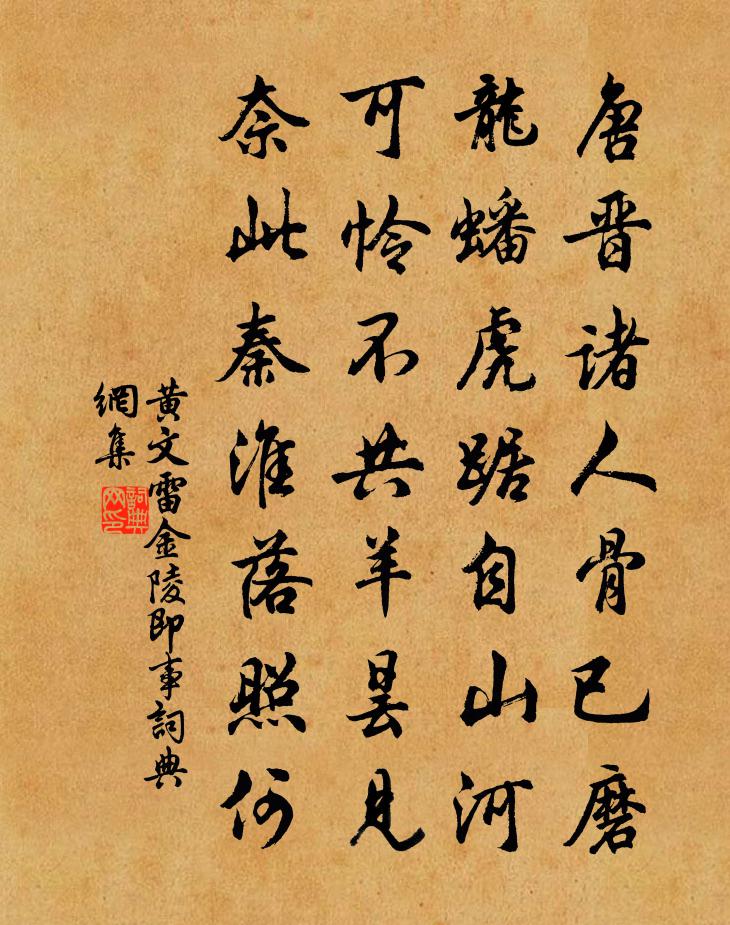 唐晋諸人骨已磨
龍蟠虎踞自山河
可怜不共羊曇見
奈此秦淮落照何
黃文雷金陵即事詞典
網集
詞典網印